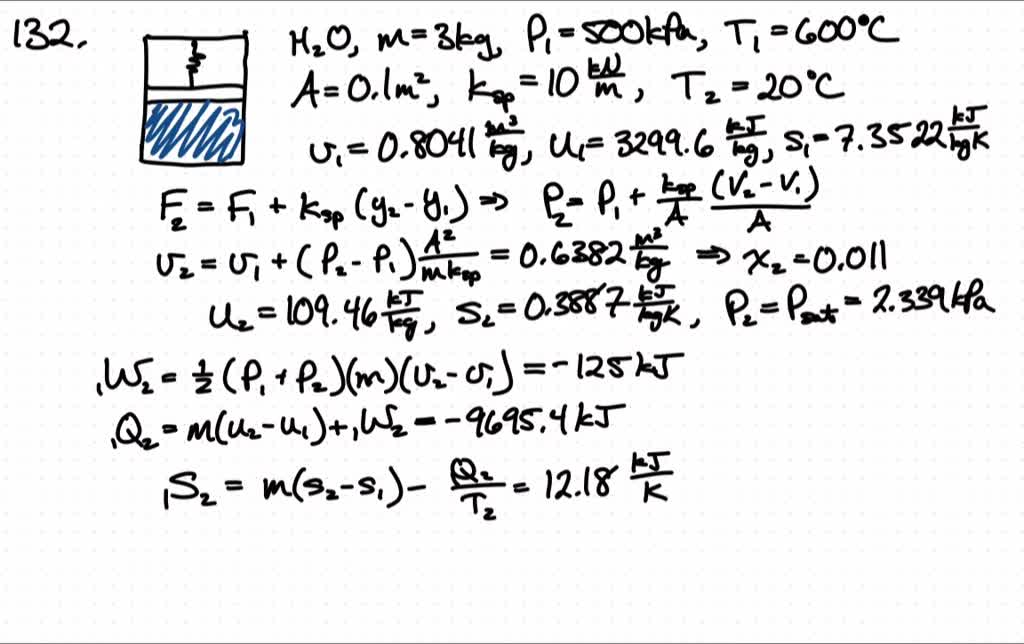 132.
H₂O, m=3kg, P₁=500kPa, T₁=600°C
A=0.1m², k_sp=10 kN/m, T₂=20°C
v₁=0.8041 m³/kg, u₁=3299.6 kJ/kg, s₁=7.3522 kJ/kgK
F₂=F₁+k_sp(y₂-y₁) ⇒ P₂=P₁+k_sp/A (V₂-V₁)/A
v₂=v₁+(P₂-P₁)A²/mk_sp=0.6382 m³/kg ⇒ x₂=0.011
u₂=109.46 kJ/kg, s₂=0.3887 kJ/kgK, P₂=P_sat=2.339kPa
₁W₂=½(P₁+P₂)(m)(v₂-v₁)=-125kJ
₁Q₂=m(u₂-u₁)+₁W₂=-9695.4kJ
₁S₂=m(s₂-s₁)-Q₂/T₂=12.18 kJ/K